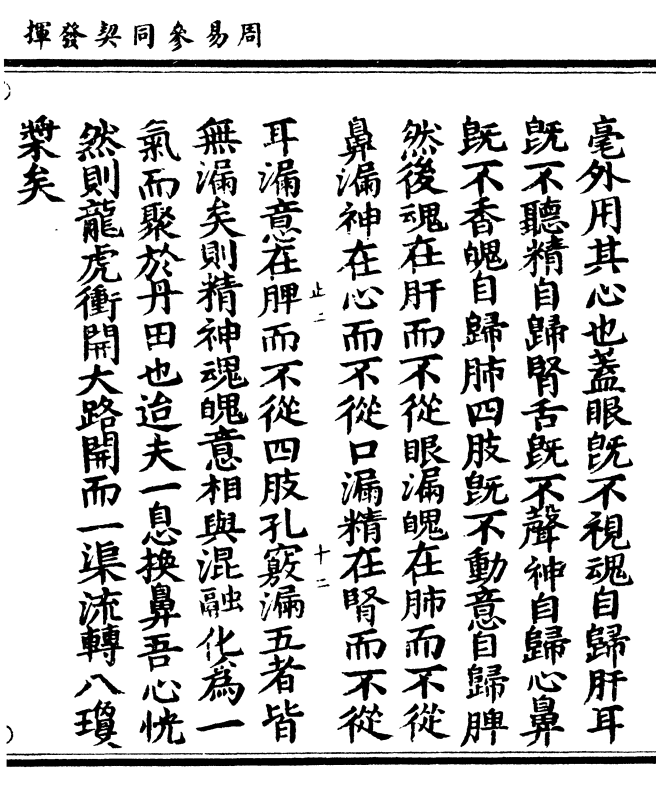 周易參同契發揮
毫外用其心也蓋眼旣不視魂自歸肝耳
旣不聽精自歸腎舌旣不聲神自歸心鼻
旣不香魄自歸肺四肢旣不動意自歸脾
然後魂在肝而不從眼漏魄在肺而不從
鼻漏神在心而不從口漏精在腎而不從
止二
十二
耳漏意在脾而不從四肢孔竅漏五者皆
無漏矣則精神魂魄意相與混融化爲一
氣而聚於丹田也迨夫一息換鼻吾心恍
然則龍虎衝開大路開而一渠流轉八瓊
漿矣